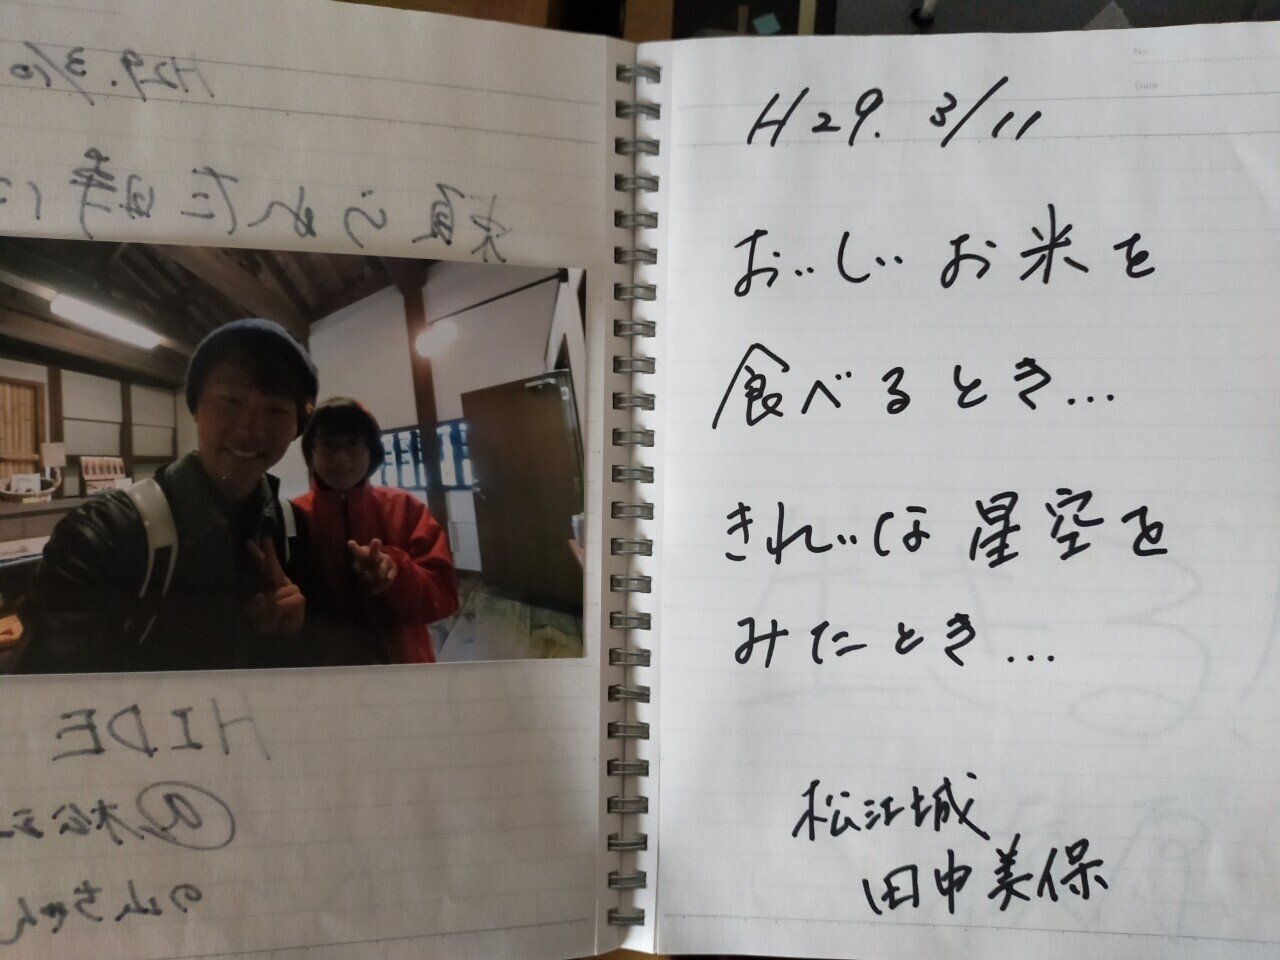 H29. 3/10
頼られた時に
HIDE
@松江
の山ちゃん
No.
Date
H29. 3/11
おいしいお米を
食べるとき…
きれいな星空を
みたとき…
松江城
田中美保